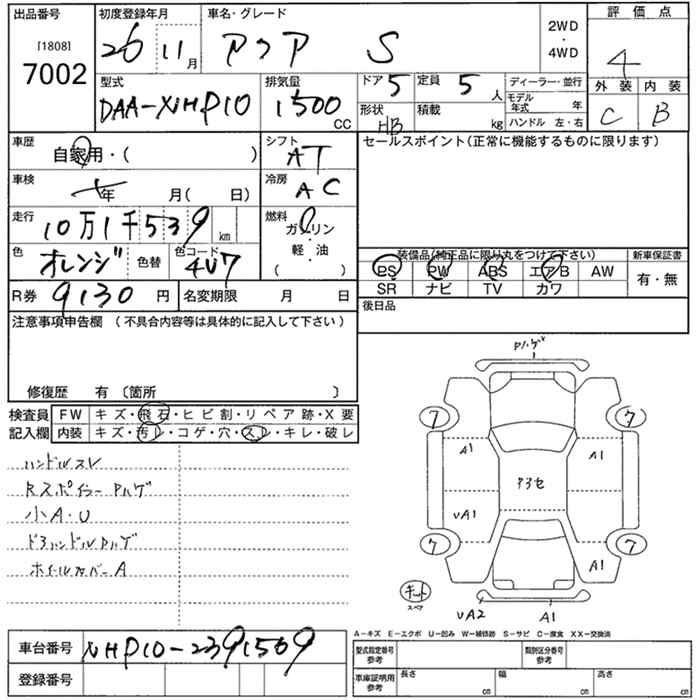 出品番号 初度登録年月 車名・グレード 評価点
[1808]
7002
26 11月 アクア S 2WD・4WD 4
型式 排気量 ドア 5 定員 5人 ディーラー・並行 外装 内装
DAA-NHP10 1500CC 形状 HB 積載 kg モデル年式 年 C B
ハンドル 左・右
車歴 シフト セールスポイント(正常に機能するものに限ります)
自家用・( ) AT
車検 年 月( 日) 冷房 AC
走行 10万1千539km 燃料 ガソリン
色 オレンジ 色替 色コード 4V7 軽・油
( )
装備品(純正品に限り丸をつけて下さい) 新車保証書
PS PW ABS エアB AW 有・無
SR ナビ TV カワ
R券 9130円 名変期限 月 日 後日品
注意事項申告欄 (不具合内容等は具体的に記入して下さい)
修復歴 有 〔箇所 〕
検査員 FW キズ・飛石・ヒビ割・リペア跡・X要
記入欄 内装 キズ・汚レ・コゲ・穴・スレ・キレ・破レ
ハンドルスレ
Rスポイラー Pハゲ
小A・U
ドアハンドルPハゲ
ホイールカバーA
Pハゲ
7 7
A1 A1
アコセ
UA1
7 7
A1
キット
スペア
UA2 A1
A-キズ E-エクボ U-凹み W-補修跡 S-サビ C-腐食 XX-交換済
車台番号 NHP10-2391509
登録番号
型式指定番号 参考 類別区分番号 参考
車庫証明用 参考 長さ cm 幅 cm 高さ cm